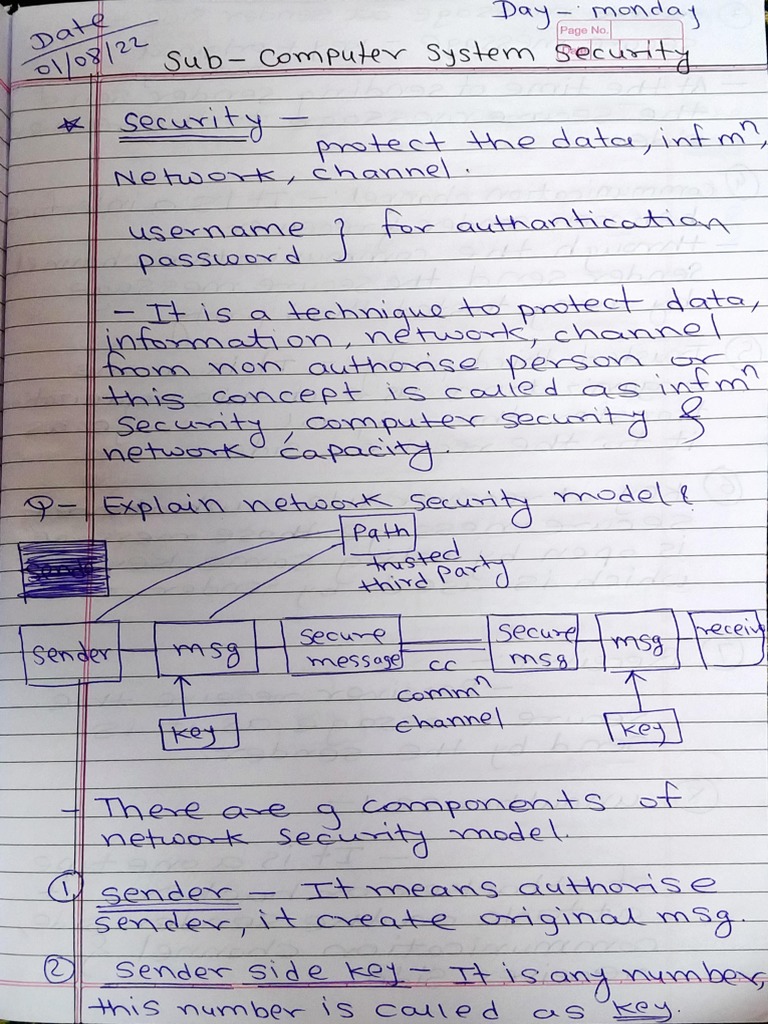 Day - monday
Date
01/08/22
Page No.
Sub - Computer System Security
* Security -
protect the data, infmⁿ,
Network, channel.
username } for authantication
password
- It is a technique to protect data,
information, network, channel
from non authorise person or
this concept is called as infmⁿ
security, computer security &
network capacity.
Q- Explain network security model?
Path
trusted
third party
sender
msg
secure
message
cc
commⁿ
channel
secure
msg
msg
receiv
key
key
- There are 9 components of
network security model.
① sender - It means authorise
sender, it create original msg.
② sender side key - It is any number,
this number is called as key.